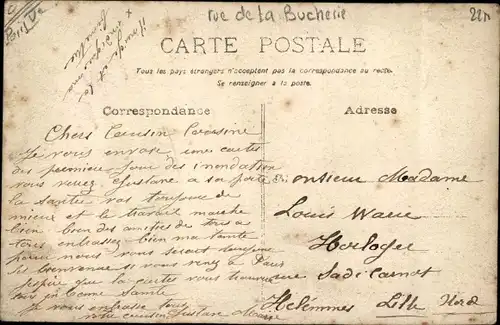 Paris Ve
rue de la Bucherie
CARTE POSTALE
Tous les pays étrangers n'acceptent pas la correspondance au recto.
Se renseigner à la poste.
Correspondance
Chers Cousin Cousine
Je vous envoie une cartes
des premier Jour des inondation
vous verez Gustave a sa porte
la santée vas toujour de
mieux et le travail marche
bien bien des amities de tous a
tous embrassez bien ma tante
pour nous vous serait toujour
bienvenue si vous venez a Paris
que la cartes vous trouve
tous en bonne Santé
Je vous embrasse tous
votre cousin Gustave
Adresse
Monsieur Madame
Louis
Horloger
rue Sadi Carnot
Helémmes Lille Nord